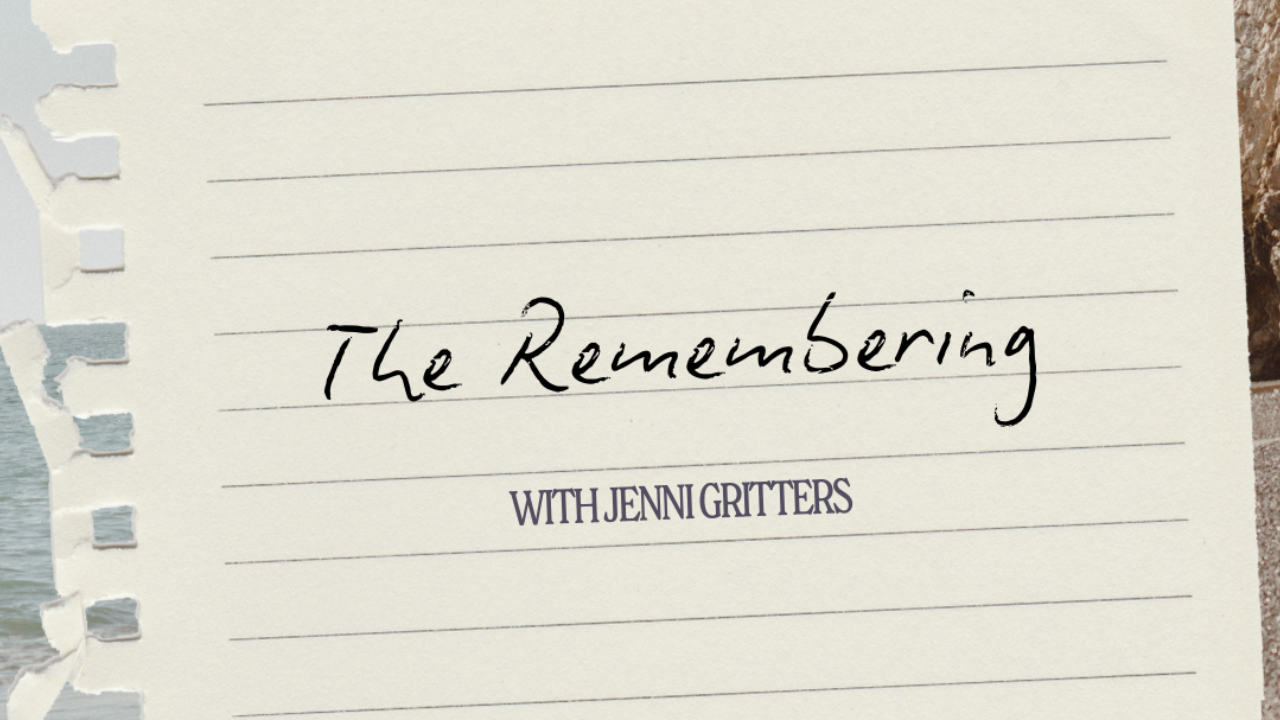 The Remembering
WITH JENNI GRITTERS